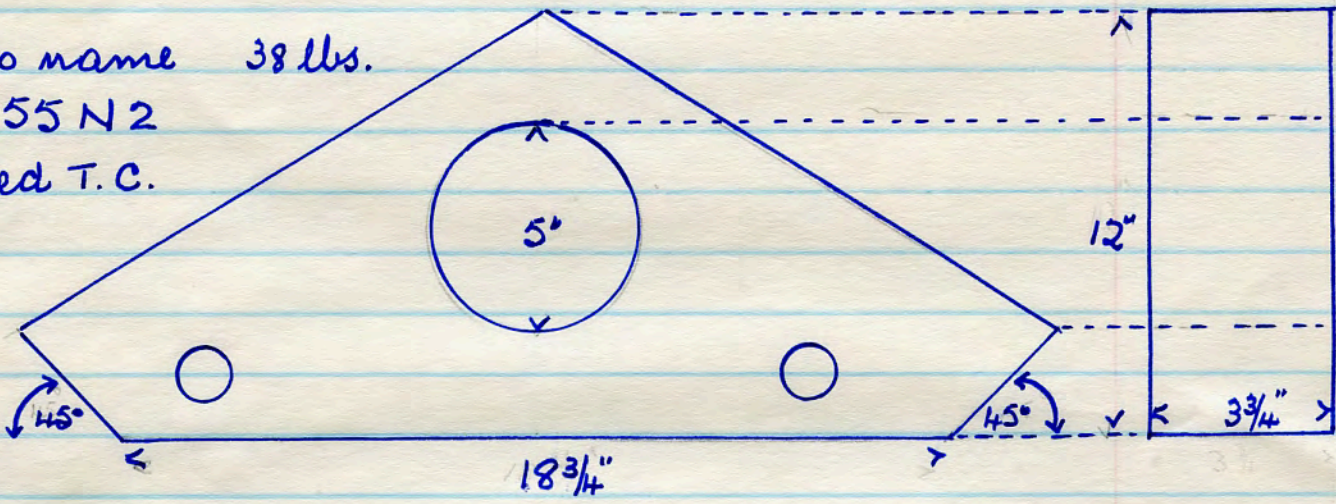 o name 38 lbs.
55 N 2
ed T. C.
5"
12"
45°
45°
3 3/4"
18 3/4"